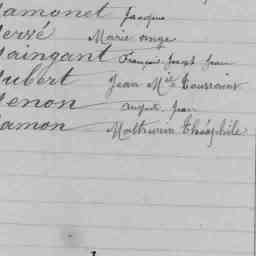 amonet Jacques
ervé Marie ange
aingant François Joseph Jean
ubert Jean Mie Toussaint
enon auguste Jean
amon Mathurin Théophile